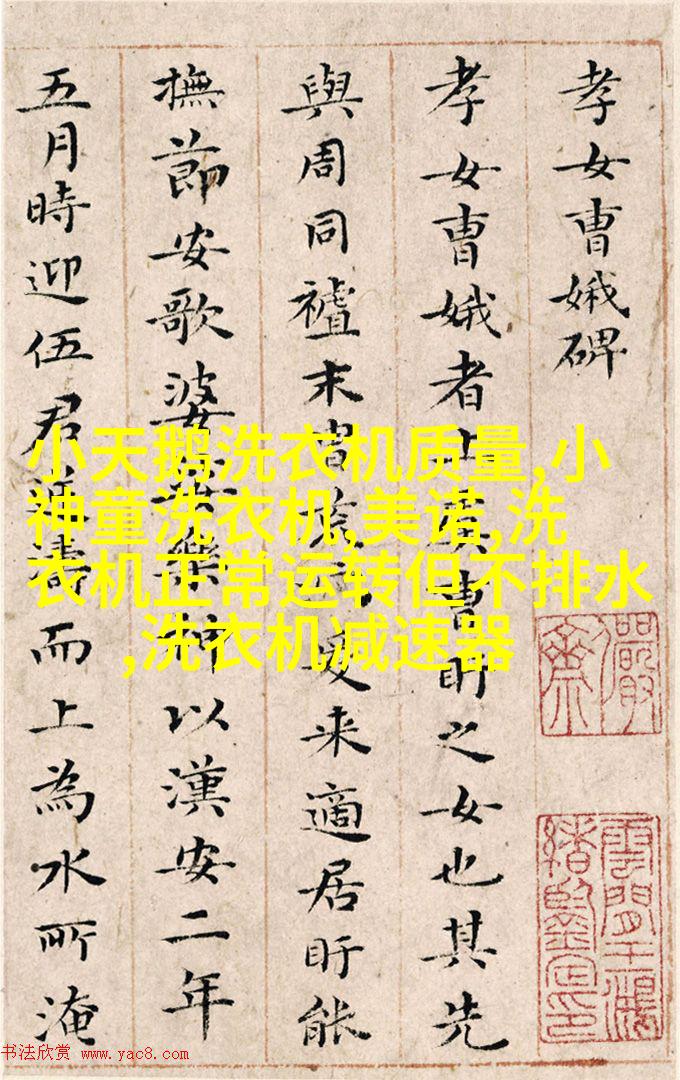 孝女曹娥碑
孝女曹娥者上虞曹盱之女也其先
與周同末胄爰来適居盱能
撫節安歌婆娑樂神以漢安二年
五月時迎伍君逆濤而上為水所淹
小天鹅洗衣机质量,小
神童洗衣机,美诺,洗
衣机正常运转但不排水
,洗衣机减速器
儼齋
雲間王鴻緒鑒定印
书法欣赏 www.yac8.com